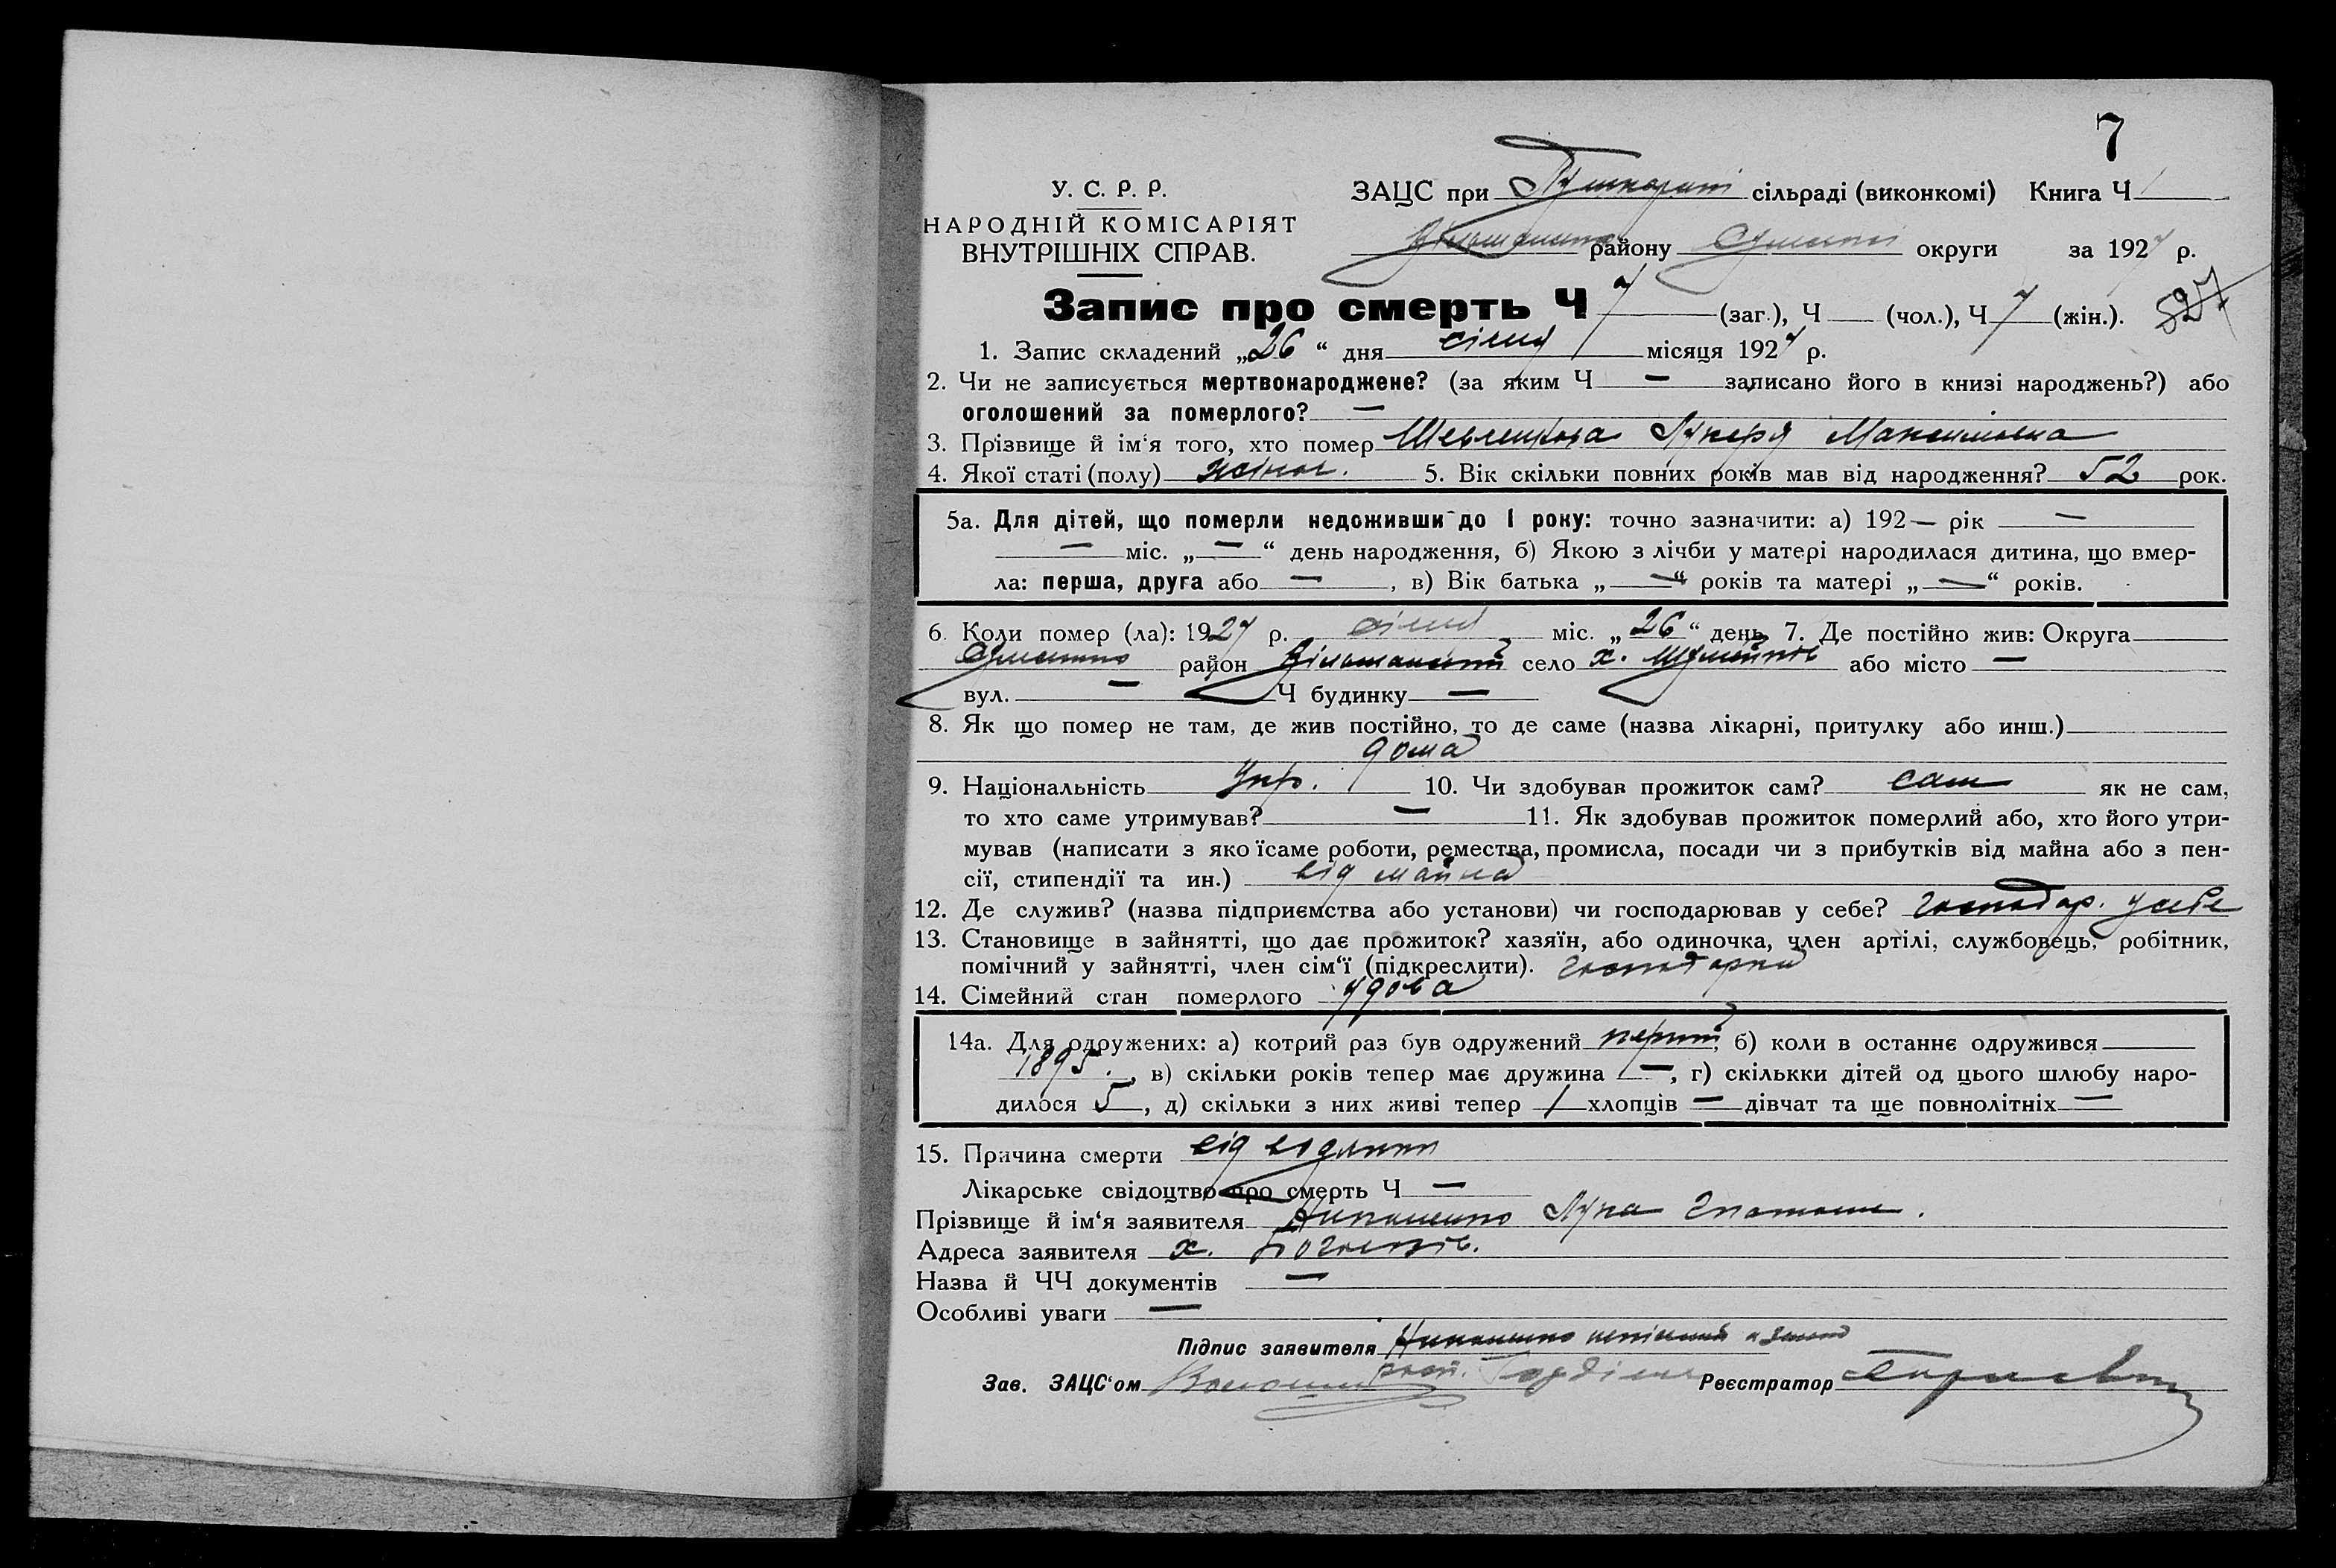 7
У. С. Р. Р.
НАРОДНІЙ КОМІСАРІЯТ
ВНУТРІШНІХ СПРАВ.
ЗАЦС при сільраді (виконкомі) Книга Ч 1
району Сумської округи за 1927 р.
Запис про смерть Ч 7 (заг.), Ч (чол.), Ч 7 (жін.). 527
1. Запис складений „26“ дня січня місяця 1927 р.
2. Чи не записується мертвонароджене? (за яким Ч — записано його в книзі народжень?) або
оголошений за померлого? —
3. Прізвище й ім‘я того, хто помер Лукеря Максимовна
4. Якої статі (полу) жіноч. 5. Вік скільки повних років мав від народження? 52 рок.
5а. Для дітей, що померли недоживши до 1 року: точно зазначити: а) 192— рік —
— міс. „—“ день народження, б) Якою з лічби у матері народилася дитина, що вмер-
ла: перша, друга або —, в) Вік батька „—“ років та матері „—“ років.
6. Коли помер (ла): 1927 р. січня міс. „26“ день 7. Де постійно жив: Округа
район село х. або місто —
вул. — Ч будинку —
8. Як що помер не там, де жив постійно, то де саме (назва лікарні, притулку або инш.)
дома
9. Національність Укр. 10. Чи здобував прожиток сам? сам як не сам,
то хто саме утримував? — 11. Як здобував прожиток померлий або, хто його утри-
мував (написати з якоїсаме роботи, ремества, промисла, посади чи з прибутків від майна або з пен-
сії, стипендії та ин.) від майна
12. Де служив? (назва підприємства або установи) чи господарював у себе? господар. у себе
13. Становище в зайнятті, що дає прожиток? хазяїн, або одиночка, член артілі, службовець, робітник,
помічний у зайнятті, член сім‘ї (підкреслити). господарка
14. Сімейний стан померлого удова
14а. Для одружених: а) котрий раз був одружений перший, б) коли в останнє одружився
1895., в) скільки років тепер має дружина —, г) скількки дітей од цього шлюбу наро-
дилося 5, д) скільки з них живі тепер 1 хлопців — дівчат та ще повнолітніх —
15. Причина смерти від водянки
Лікарське свідоцтво про смерть Ч —
Прізвище й ім‘я заявителя Лука
Адреса заявителя х.
Назва й ЧЧ документів —
Особливі уваги —
Підпис заявителя
Зав. ЗАЦС‘ом Реєстратор